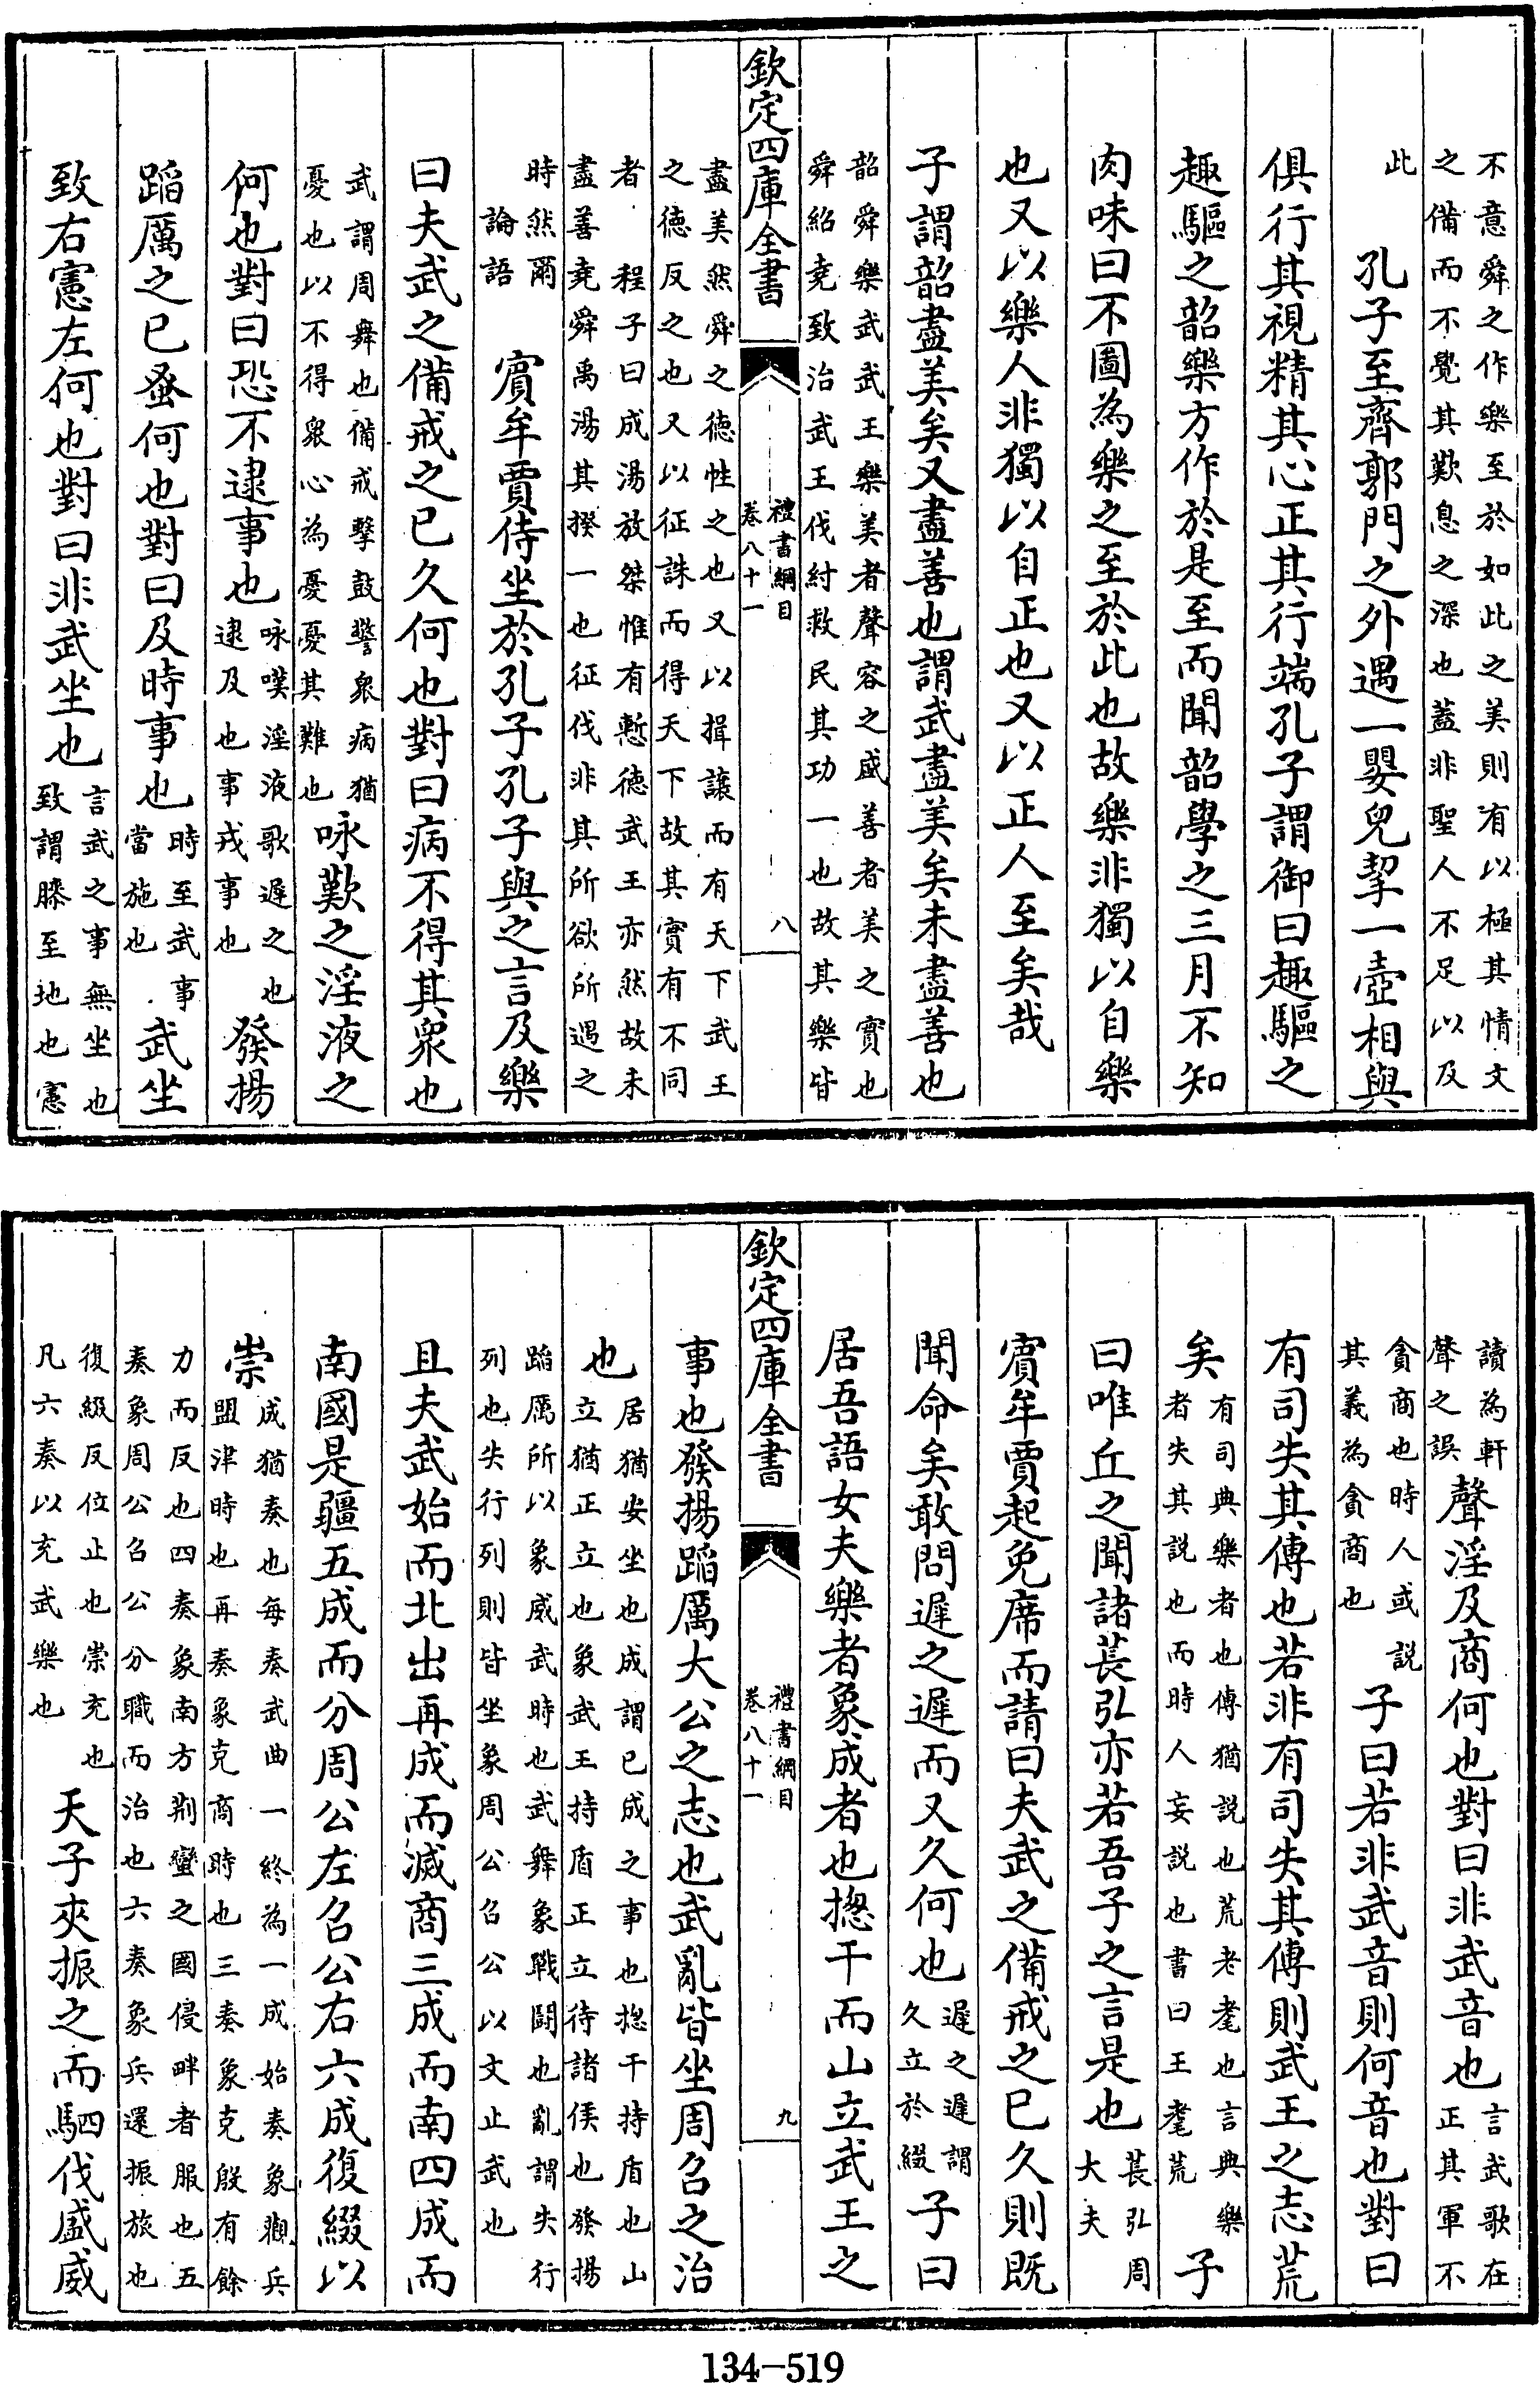 不意舜之作樂至於如此之美則有以極其情文
之備而不覺其歎息之深也蓋非聖人不足以及
此
孔子至齊郭門之外遇一嬰兒挈一壺相與
俱行其視精其心正其行端孔子謂御曰趣驅之
趣驅之韶樂方作於是至而聞韶學之三月不知
肉味曰不圖為樂之至於此也故樂非獨以自樂
也又以樂人非獨以自正也又以正人至矣哉
子謂韶盡美矣又盡善也謂武盡美矣未盡善也
韶舜樂武武王樂美者聲容之盛善者美之實也
舜紹堯致治武王伐紂救民其功一也故其樂皆
欽定四庫全書
禮書綱目
卷八十一
八
盡美然舜之德性之也又以揖讓而有天下武王
之德反之也又以征誅而得天下故其實有不同
者 程子曰成湯放桀惟有慙德武王亦然故未
盡善堯舜禹湯其揆一也征伐非其所欲所遇之
時然爾
論語
賓牟賈侍坐於孔子孔子與之言及樂
曰夫武之備戒之已久何也對曰病不得其衆也
武謂周舞也備戒擊鼓警衆病猶
憂也以不得衆心為憂憂其難也
咏歎之淫液之
何也對曰恐不逮事也
咏嘆淫液歌遲之也
逮及也事戎事也
發揚
蹈厲之已蚤何也對曰及時事也
時至武事
當施也
武坐
致右憲左何也對曰非武坐也
言武之事無坐也
致謂膝至地也憲
讀為軒
聲之誤
聲淫及商何也對曰非武音也
言武歌在
正其軍不
貪商也時人或説
其義為貪商也
子曰若非武音則何音也對曰
有司失其傳也若非有司失其傳則武王之志荒
矣
有司典樂者也傳猶説也荒老耄也言典樂
者失其説也而時人妄説也書曰王耄荒
子
曰唯丘之聞諸萇弘亦若吾子之言是也
萇弘周
大夫
賓牟賈起免席而請曰夫武之備戒之已久則既
聞命矣敢問遲之遲而又久何也
遲之遲謂
久立於綴
子曰
居吾語女夫樂者象成者也摠干而山立武王之
欽定四庫全書
禮書綱目
卷八十一
九
事也發揚蹈厲大公之志也武亂皆坐周召之治
也
居猶安坐也成謂已成之事也摠干持盾也山
立猶正立也象武王持盾正立待諸侯也發揚
蹈厲所以象威武時也武舞象戰鬪也亂謂失行
列也失行列則皆坐象周公召公以文止武也
且夫武始而北出再成而滅商三成而南四成而
南國是疆五成而分周公左召公右六成復綴以
崇
成猶奏也每奏武曲一終為一成始奏象觀兵
盟津時也再奏象克商時也三奏象克殷有餘
力而反也四奏象南方荆蠻之國侵畔者服也五
奏象周公召公分職而治也六奏象兵還振旅也
復綴反位止也崇充也
凡六奏以充武樂也
天子夾振之而駟伐盛威
134-519